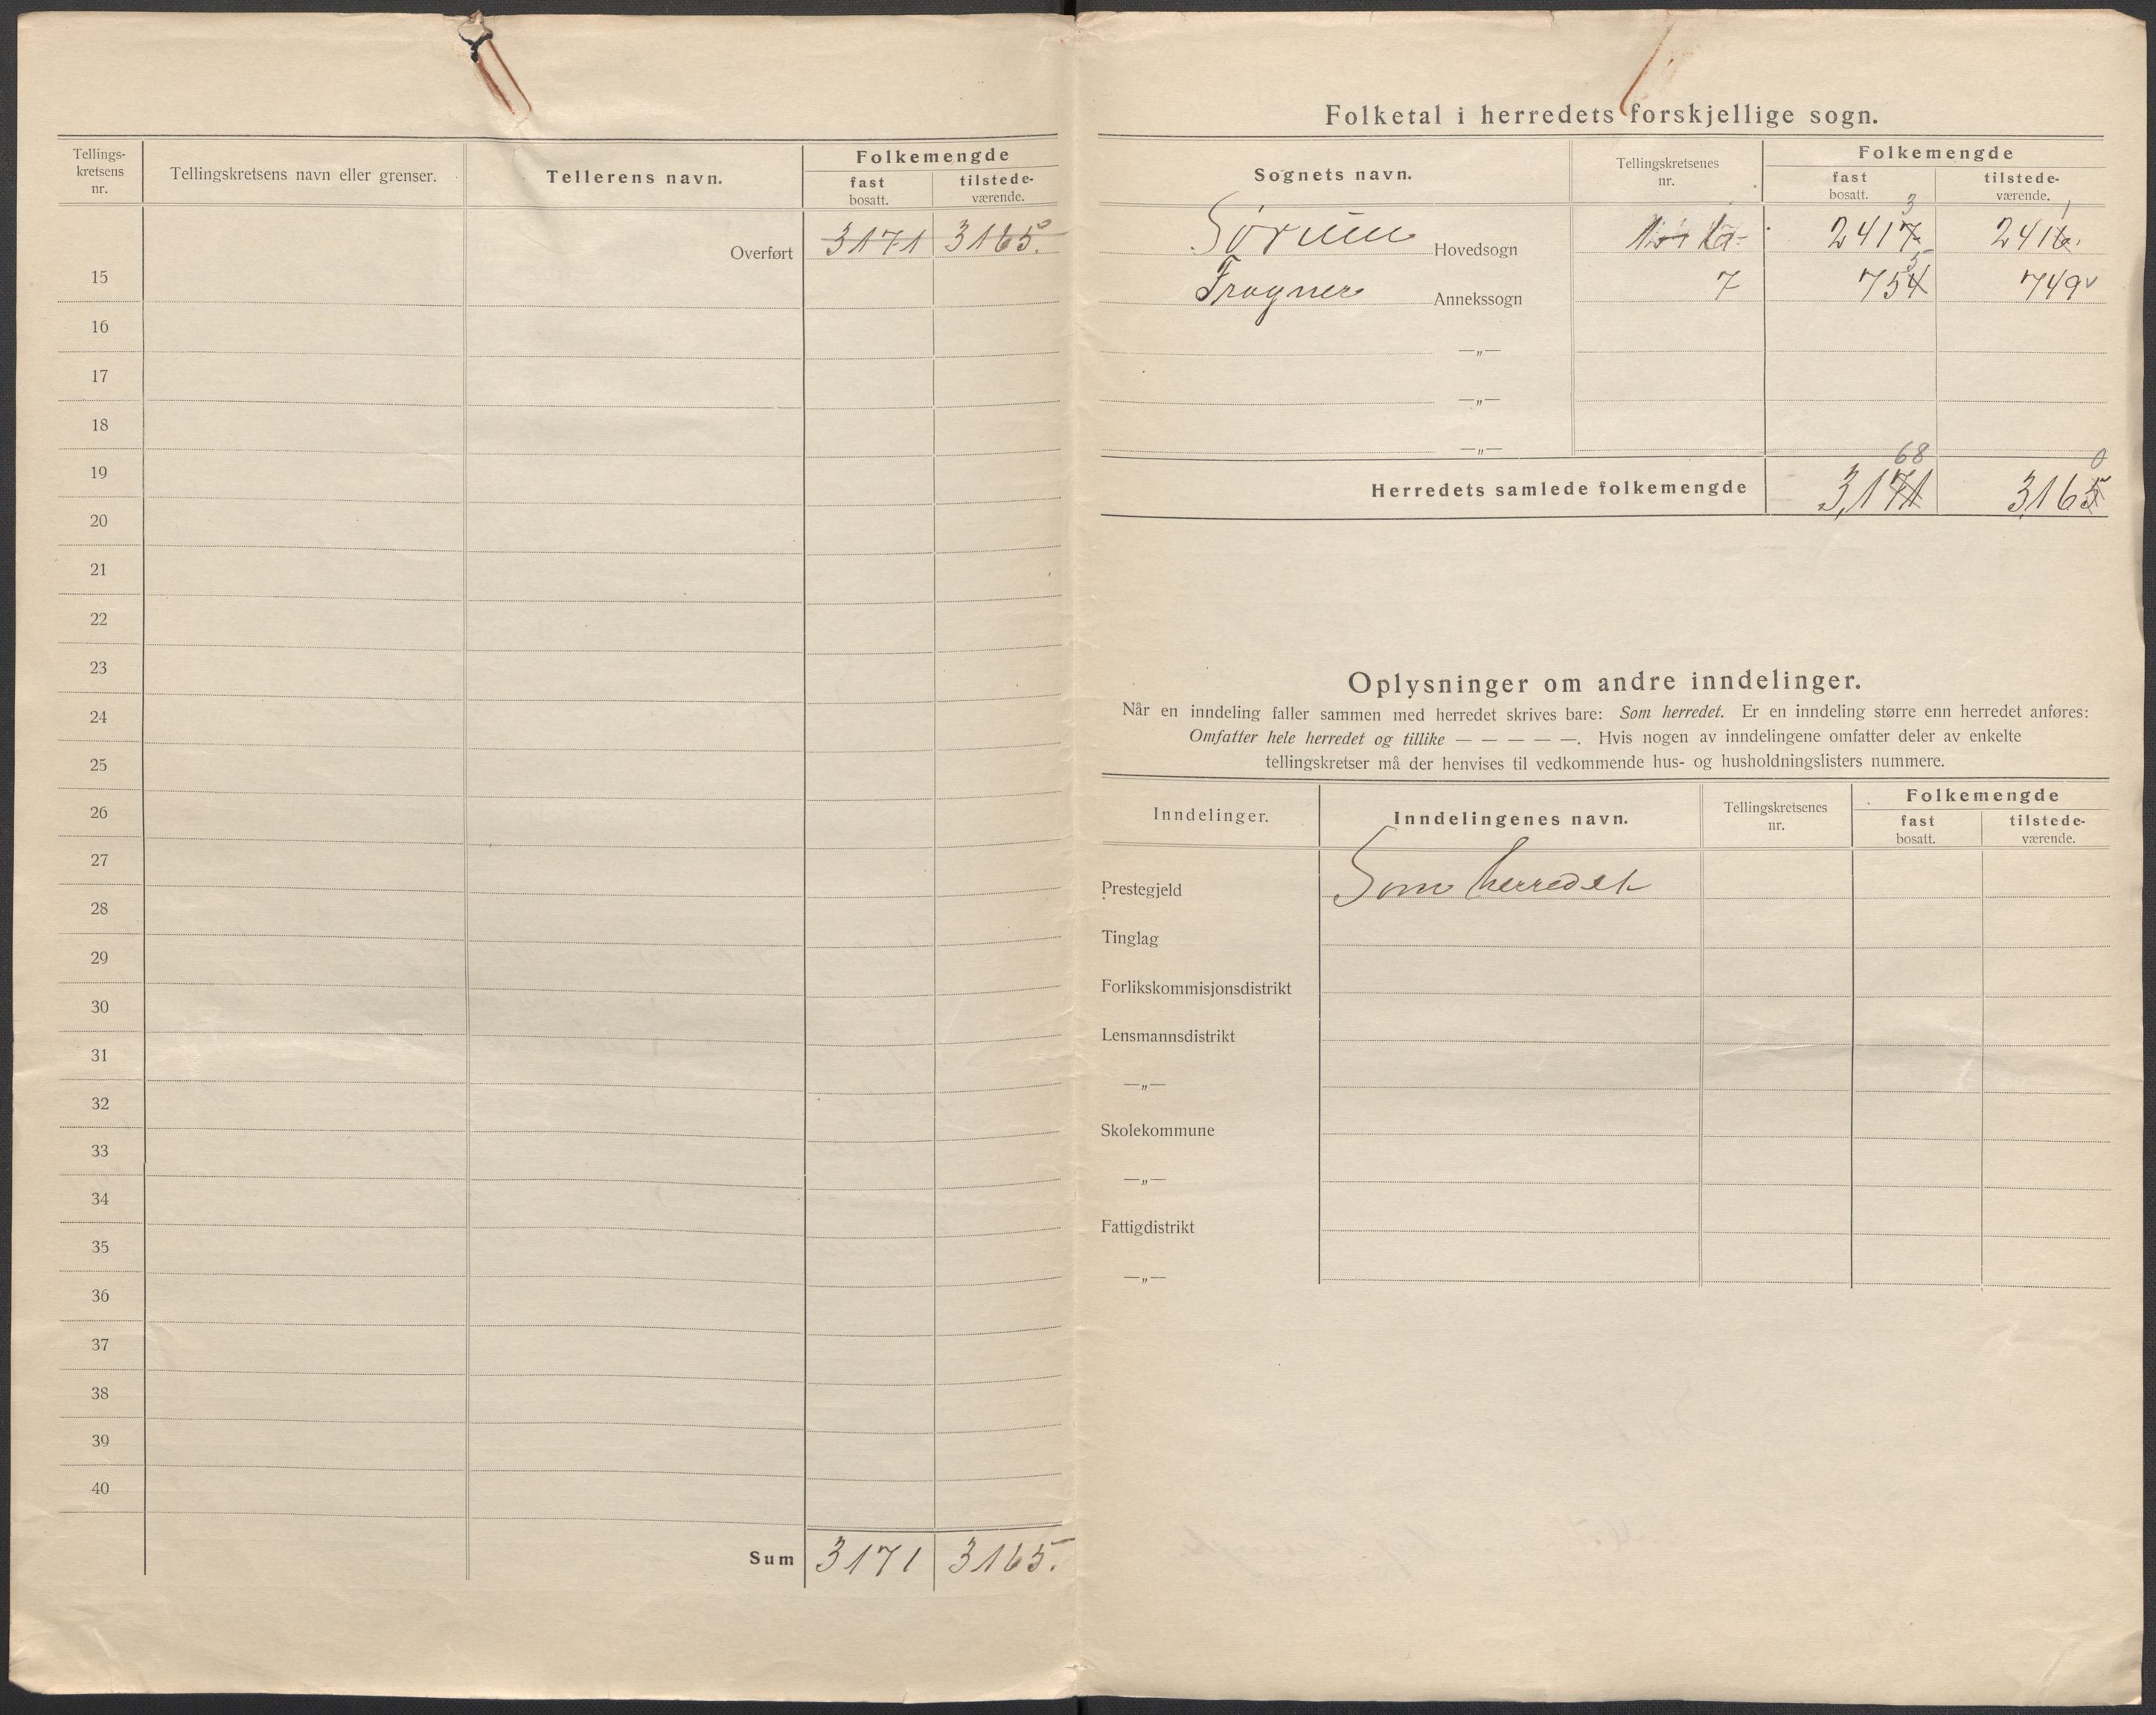 Tellings-
kretsens
nr.
Tellingskretsens navn eller grenser.
Tellerens navn.
Folkemengde
fast
bosatt.
tilstede-
værende.
Overført 3171 3165.
15
16
17
18
19
20
21
22
23
24
25
26
27
28
29
30
31
32
33
34
35
36
37
38
39
40
Sum 3171 3165.
Folketal i herredets forskjellige sogn.
Sognets navn.
Tellingskretsenes
nr.
Folkemengde
fast
bosatt.
tilstede-
værende.
3 1
Sørum Hovedsogn 2417 2416.
5
Frogner Annekssogn 7 754 749
—„—
—„—
—„—
68 0
Herredets samlede folkemengde 3,171 3165
Oplysninger om andre inndelinger.
Når en inndeling faller sammen med herredet skrives bare: Som herredet. Er en inndeling større enn herredet anføres:
Omfatter hele herredet og tillike — — — — —. Hvis nogen av inndelingene omfatter deler av enkelte
tellingskretser må der henvises til vedkommende hus- og husholdningslisters nummere.
Inndelinger.
Inndelingenes navn.
Tellingskretsenes
nr.
Folkemengde
fast
bosatt.
tilstede-
værende.
Prestegjeld Som herredet
Tinglag
Forlikskommisjonsdistrikt
Lensmannsdistrikt
—„—
Skolekommune
—„—
Fattigdistrikt
—„—